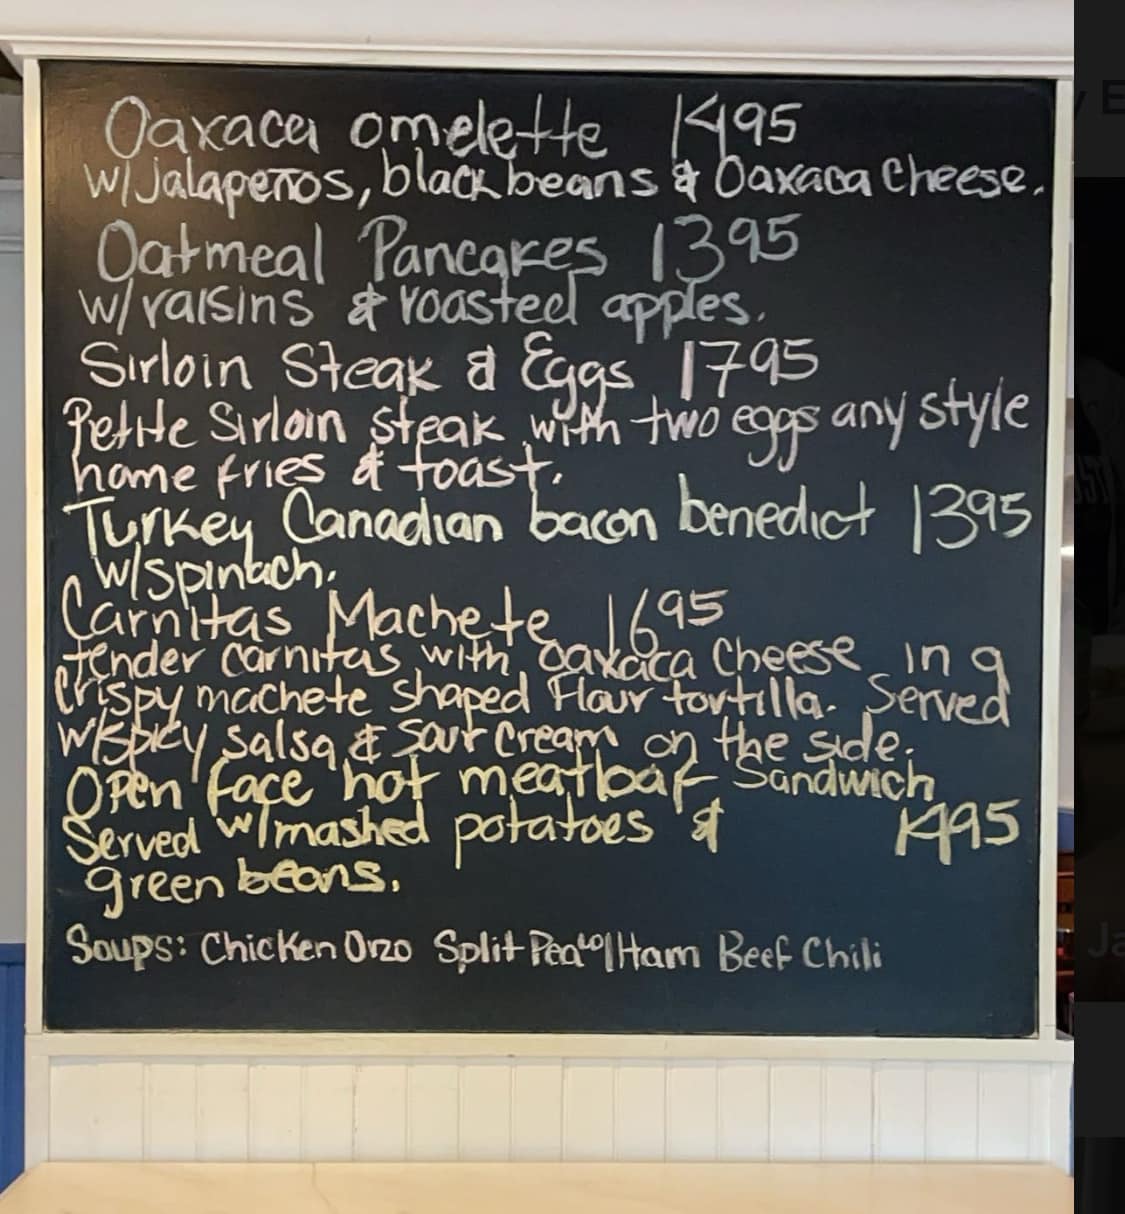 Oaxaca omelette 1495
w/jalapeños, black beans & Oaxaca Cheese.
Oatmeal Pancakes 1395
w/raisins & roasted apples.
Sirloin Steak & Eggs 1795
Petite Sirloin steak with two eggs any style
home fries & toast.
Turkey Canadian bacon benedict 1395
w/spinach.
Carnitas Machete 1695
tender carnitas with Oaxaca Cheese in a
crispy machete shaped Flour tortilla. Served
w/spicy salsa & sour cream on the side.
Open face hot meatloaf Sandwich
Served w/mashed potatoes & 1495
green beans.
Soups: Chicken Orzo Split Pea w/Ham Beef Chili